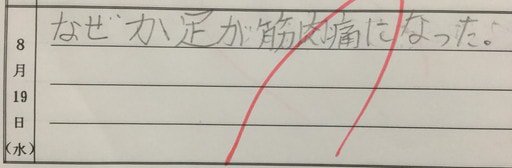 なぜか足が筋肉痛になった。
8月19日(水)